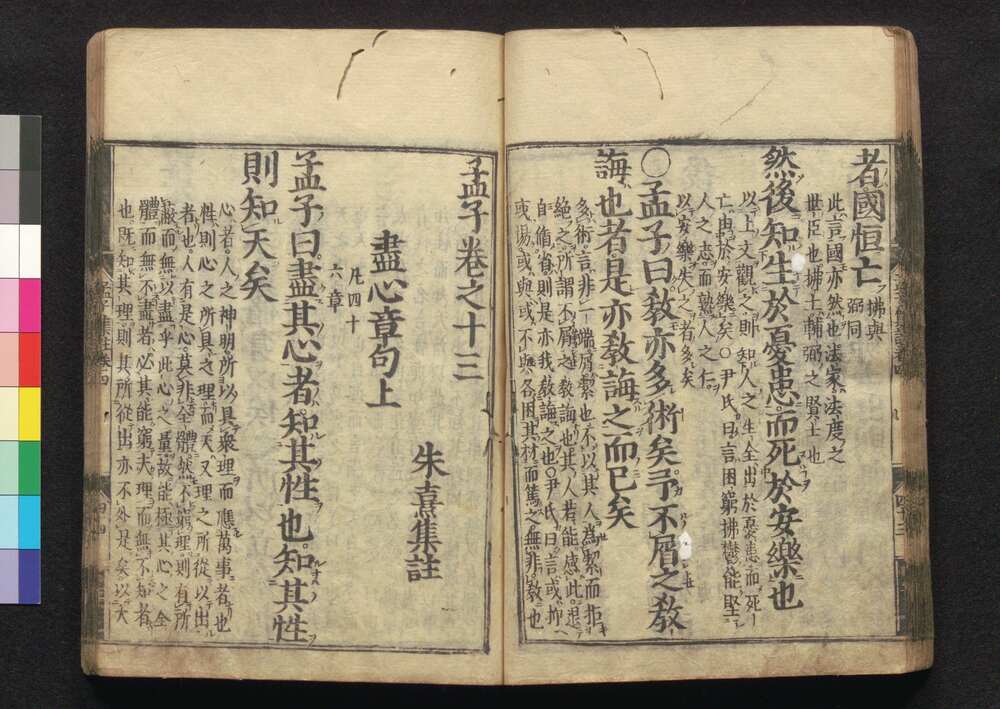 者國恒亡拂與弼同
此言國亦然也法家法度之
世臣也拂士輔弼之賢士也
然後知生於憂患而死於安樂也
以上文觀之則知人之生全出於憂患而死
亡由於安樂矣〇尹氏曰言困窮拂欝能堅
人之志而熟人之仁
以安樂失之者多矣
〇孟子曰敎亦多術矣予不屑之敎
誨也者是亦敎誨之而已矣
多術言非一端屑㓗也不以其人爲㓗而拒
絕之所謂不屑之敎誨也其人若能感此退
自脩省則是亦我敎誨之也〇尹氏曰言或抑
或揚或與或不與各因其材而篤之無非敎也
孟子卷之十三
朱熹集註
盡心章句上
凡四十
六章
孟子曰盡其心者知其性也知其性
則知天矣
心者人之神明所以具衆理而應萬事者也
性則心之所具之理而天又理之所從以出
者也人有是心莫非全體然不窮理則有所
蔽而無以盡乎此心之量故能極其心之全
體而無不盡者必其能窮夫理而無不知者
也既知其理則其所從出亦不外是矣以大